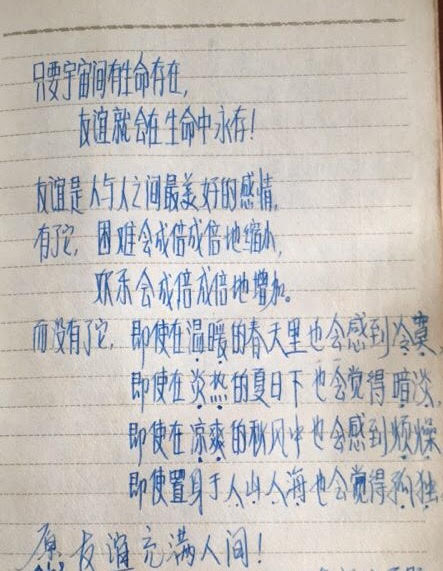 只要宇宙间有生命存在,
友谊就会在生命中永存!
友谊是人与人之间最美好的感情,
有了它, 困难会成倍成倍地缩小,
欢乐会成倍成倍地增加。
而没有了它, 即使在温暖的春天里也会感到冷寞,
即使在炎热的夏日下也会觉得暗淡,
即使在凉爽的秋风中也会感到烦燥
即使置身于人山人海也会觉得孤独
原友谊充满人间!